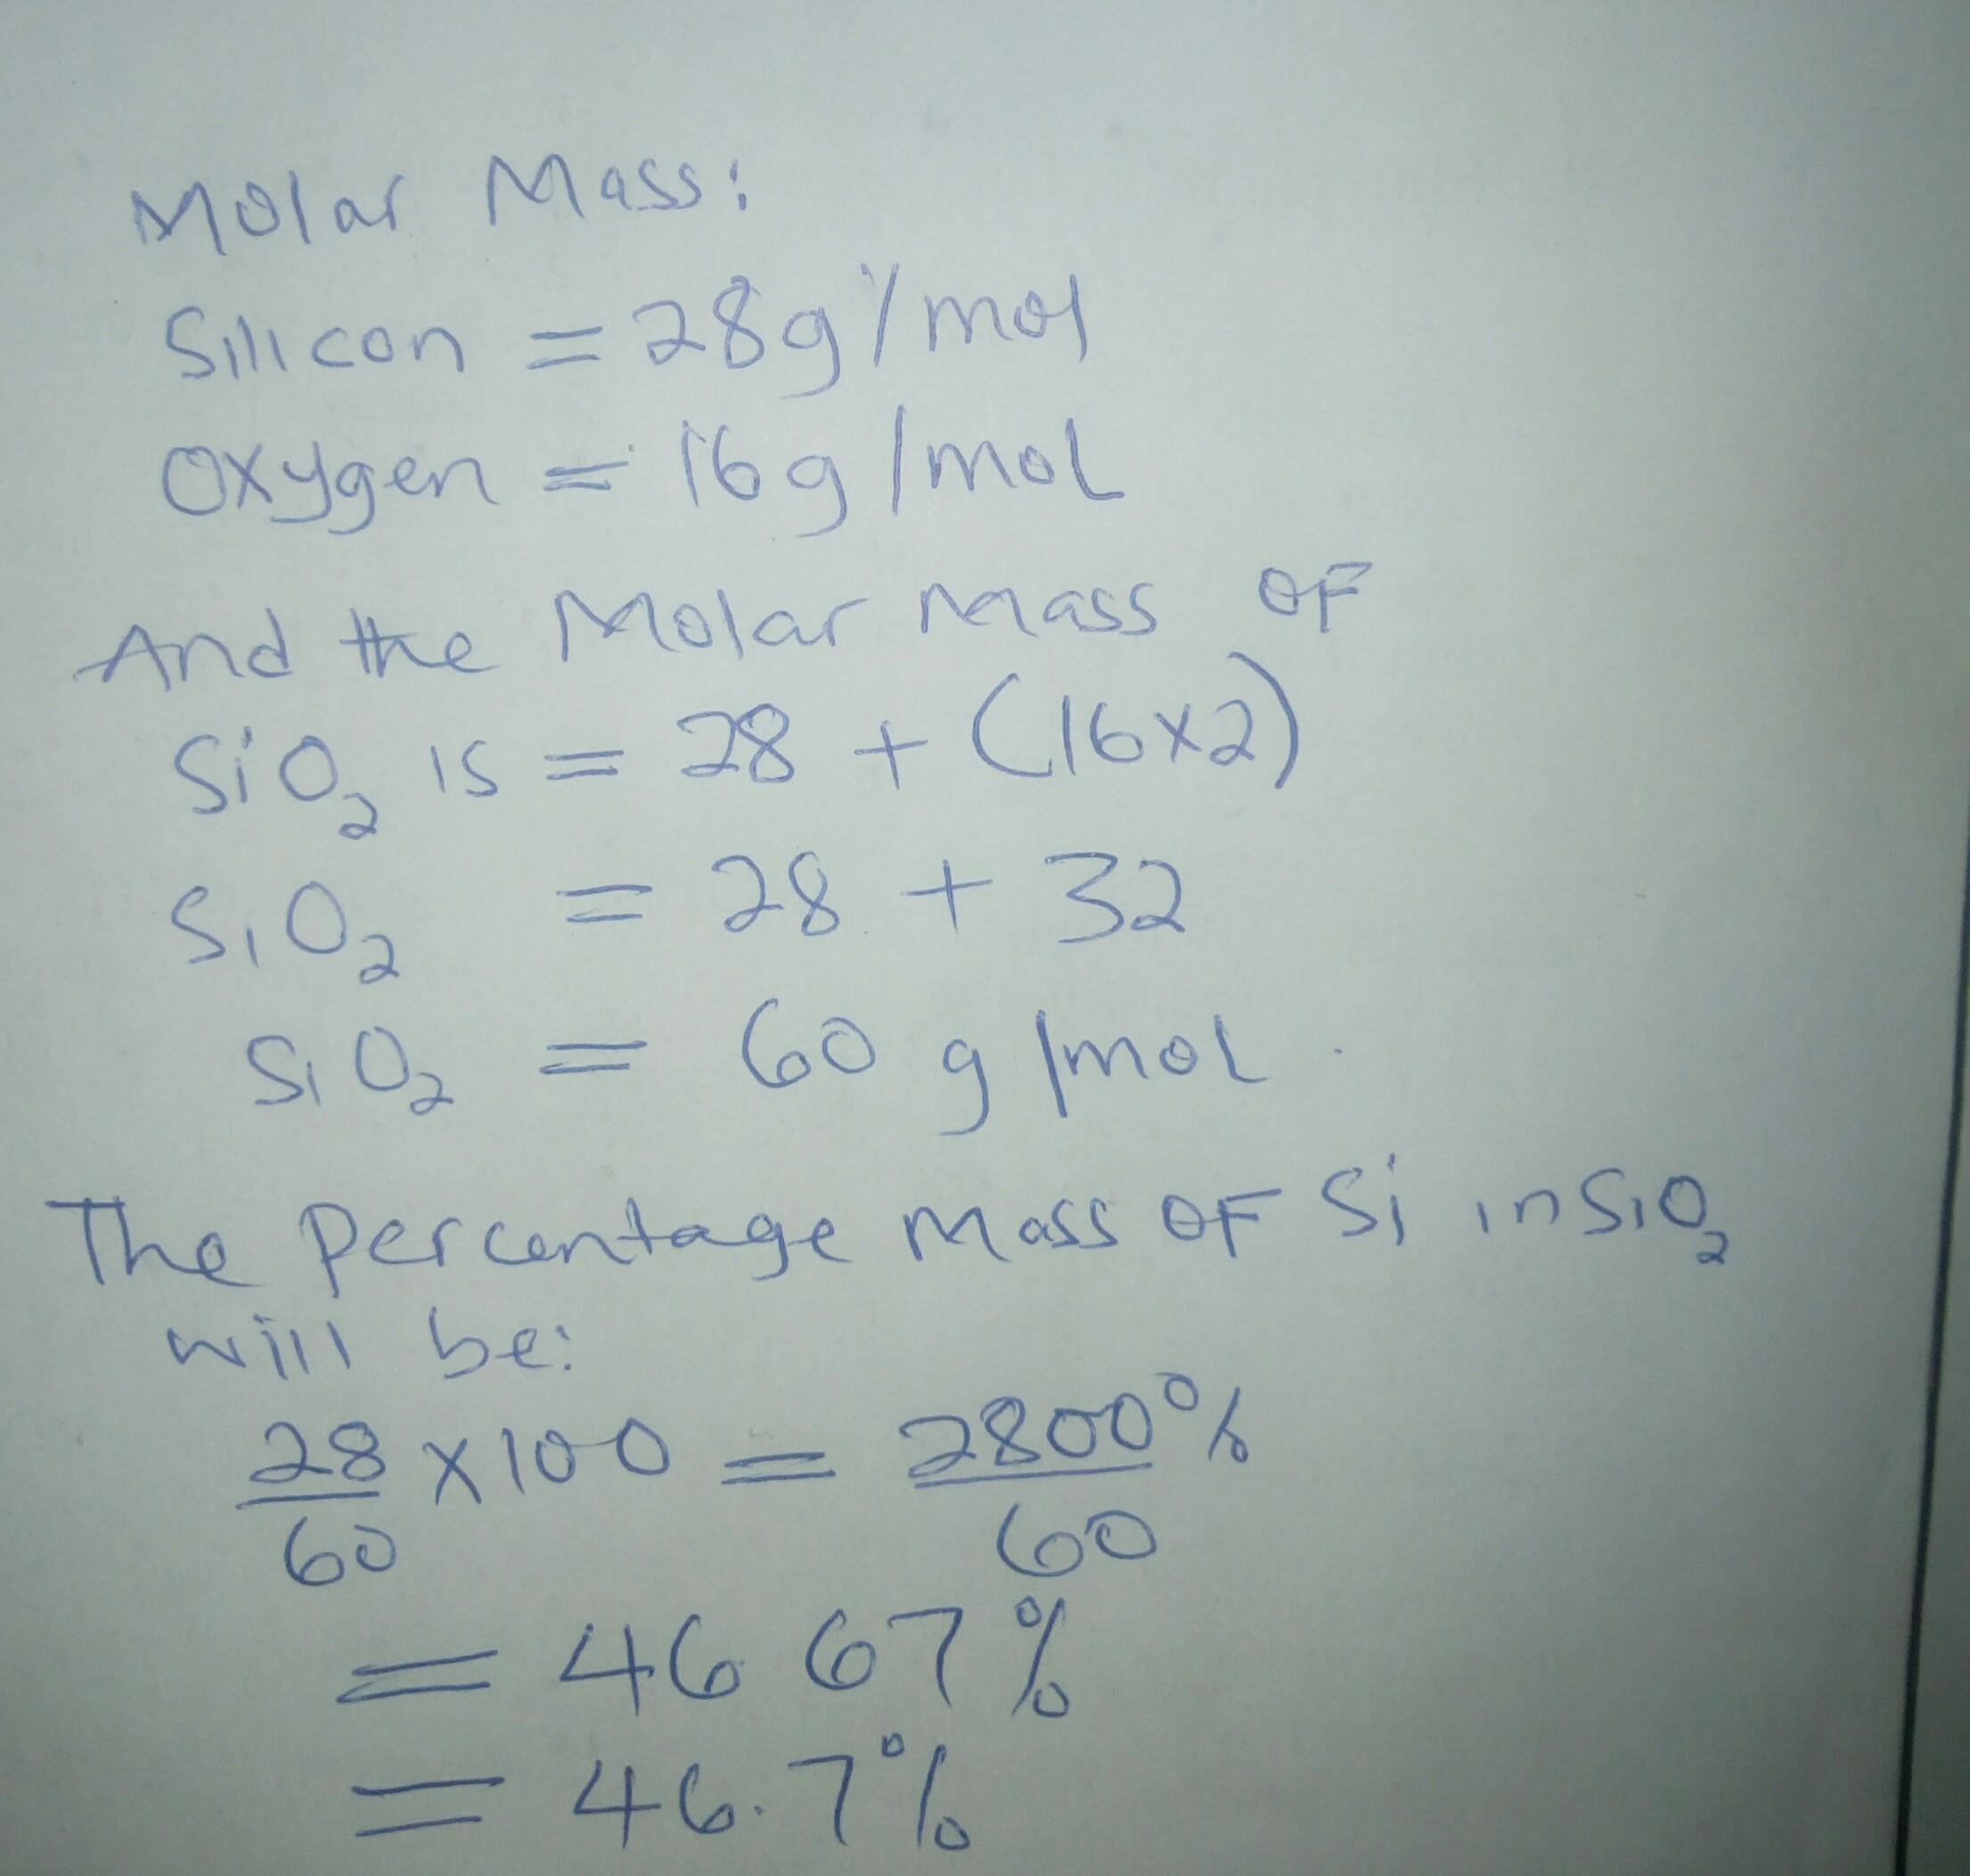 Molar Mass:
Silicon = 28g/mol
Oxygen = 16g/mol
And the Molar mass of
SiO₂ is = 28 + (16x2)
SiO₂ = 28 + 32
SiO₂ = 60 g/mol.
The percentage mass of Si in SiO₂
will be:
28/60 x 100 = 2800%/60
= 46.67%
= 46.7%